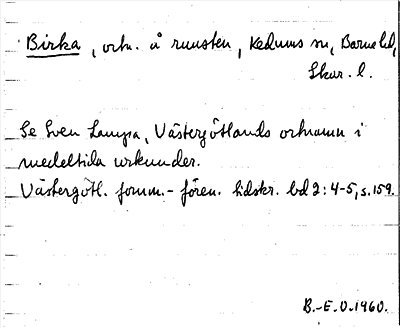 Birka, ortn. å runsten, Kedums sn, Barne hd,
Skar. l.
Se Sven Lampa, Västergötlands ortnamn i
medeltida urkunder.
Västergötl. fornm.-fören. tidskr. bd 2:4-5, s. 159.
B.-E.O. 1960.